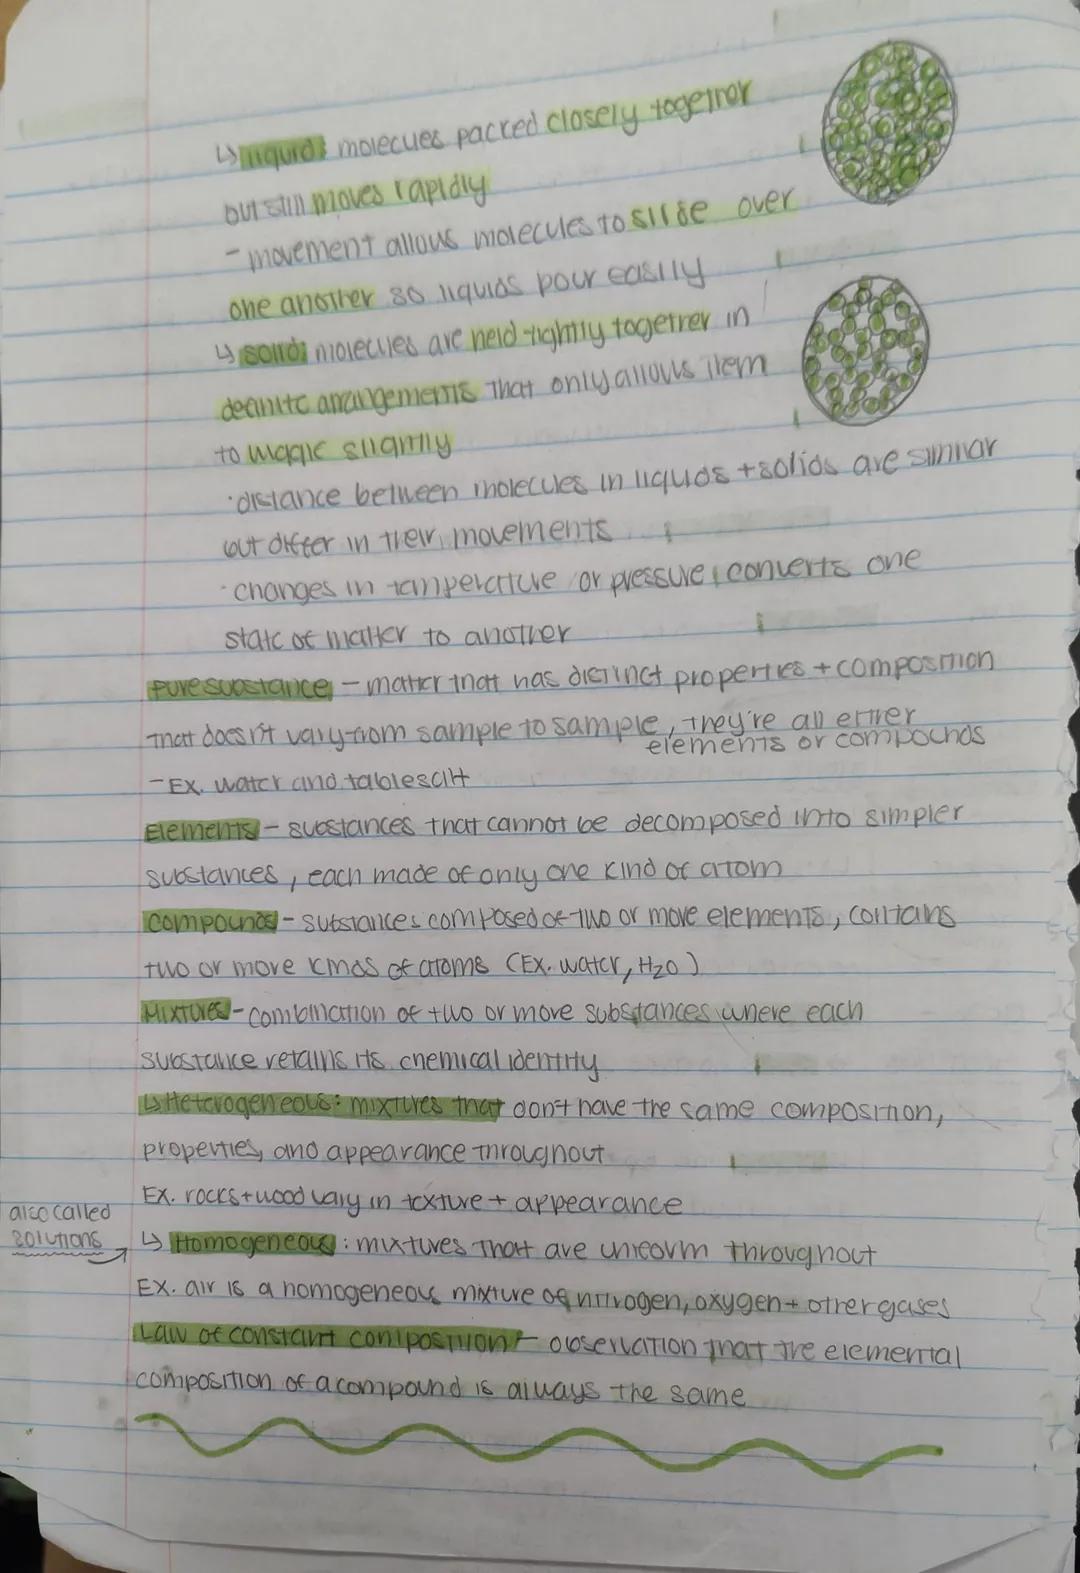 ↳ liquid: molecules packed closely together
but still moves rapidly
- movement allows molecules to slide over
one another so liquids pour easily
↳ solid: molecules are held tightly together in
definite arrangements that only allows them
to wiggle slightly
· distance between molecules in liquids + solids are similar
but differ in their movements
· changes in temperature or pressure converts one
state of matter to another
pure substance - matter that has distinct properties + composition
that doesn't vary from sample to sample, they're all either
elements or compounds
- Ex. water and tablesalt
Elements - substances that cannot be decomposed into simpler
substances, each made of only one kind of atom
compounds - substances composed of two or more elements, contains
two or more kinds of atoms (Ex. water, H2O)
Mixtures - combination of two or more substances where each
substance retains its chemical identity
↳ Heterogeneous: mixtures that don't have the same composition,
properties, and appearance throughout
Ex. rocks + wood vary in texture + appearance
also called
solutions
↳ Homogeneous: mixtures that are uniform throughout
Ex. air is a homogeneous mixture of nitrogen, oxygen + other gases
Law of constant composition - observation that the elemental
composition of a compound is always the same